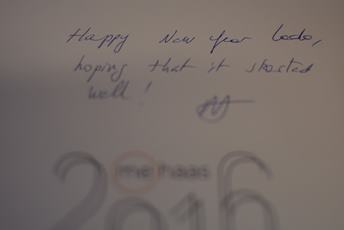 Happy New year bodo,
hoping that it started
well!
me haas
2016